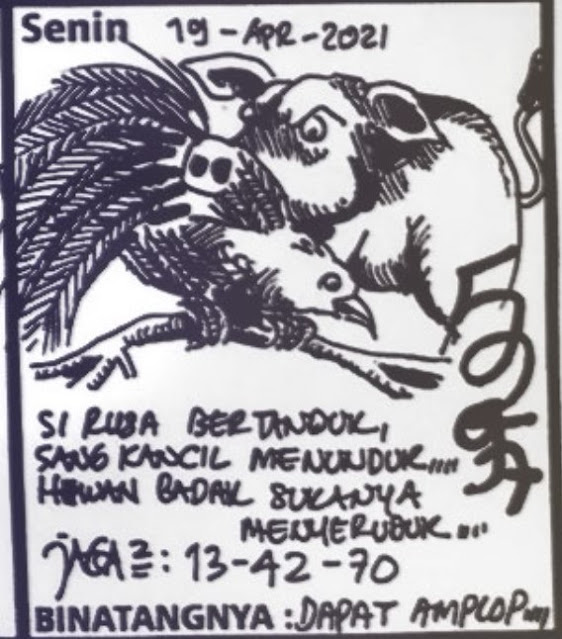 Senin 19-APR-2021
SI RUSA BERTANDUK,
SANG KANCIL MENUNDUK....
HEWAN BADAK SUKANYA
MENYERUDUK....
JAGA2: 13-42-70
BINATANGNYA : DAPAT AMPLOP....